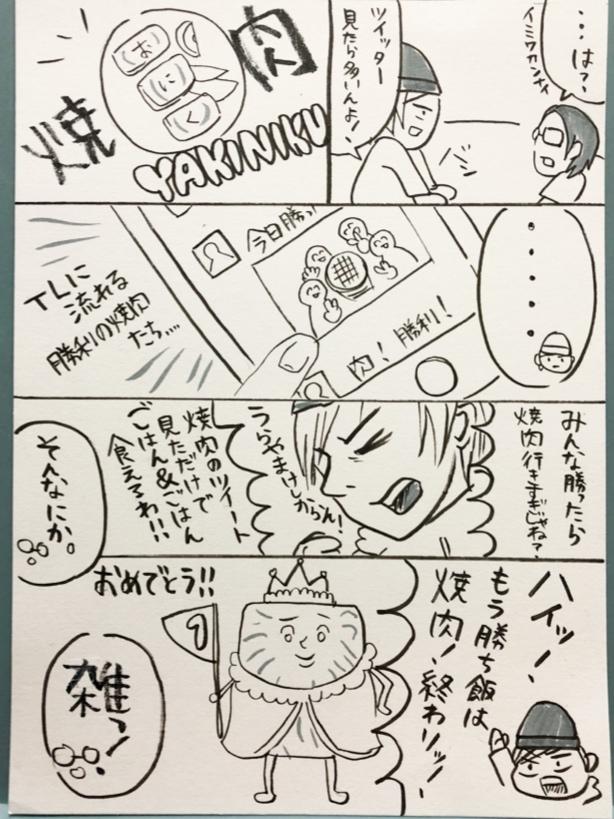 …は?
イミワカンナイ
ツイッター
見たら多いんよ!
バン
焼肉
おにく
YAKINIKU
・・・・・
今日勝っ!
肉!勝利!
TLに
流れる
勝利の焼肉
たち…
みんな勝ったら
焼肉行きすぎじゃね?
うらやまけしからん!
焼肉のツイート
見ただけで
ごはん&ごはん
食えるわ!!
そんなにか
ハイッ!
もう勝ち飯は
焼肉!終わりッ!
おめでとう!!
1
雑っ!